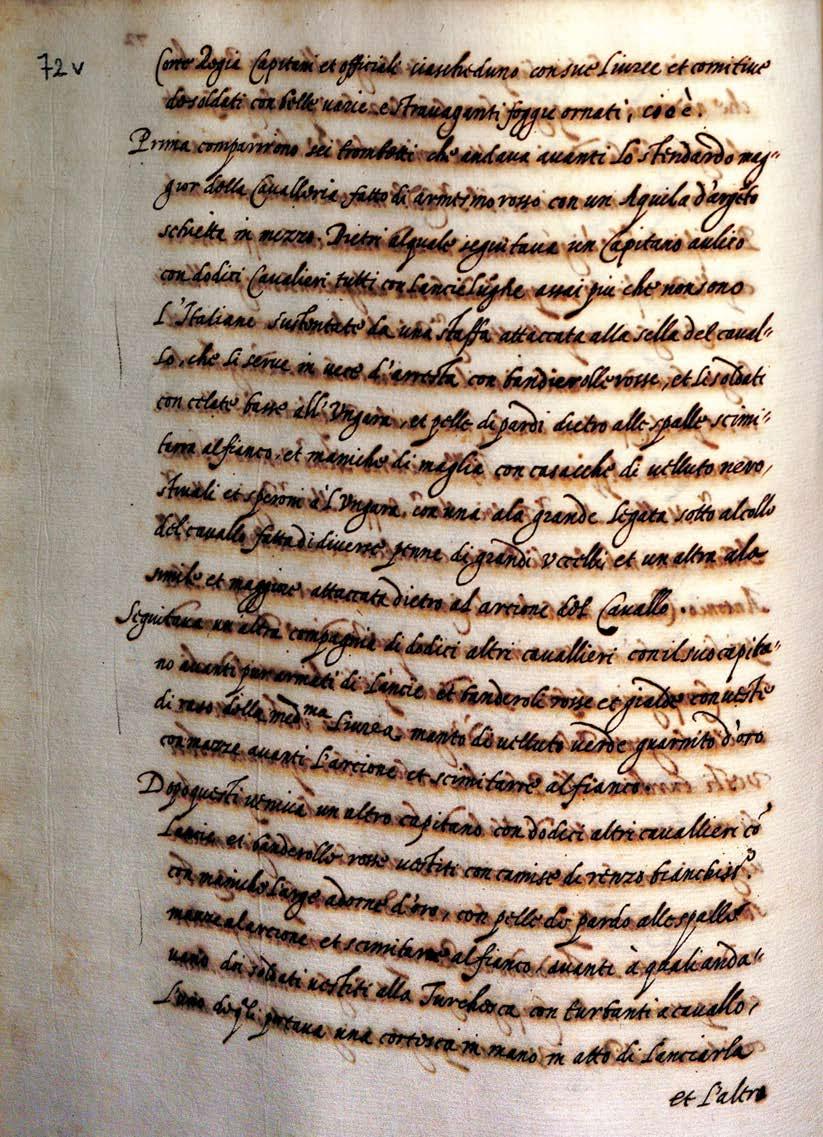 72 v
Corte Regia Capitani et officiale ciascheduno con sue Liuree et comitiue
de soldati con belle uarie e strauaganti foggie ornati, cioè.
Prima comparirono sei trombetti che andaua auanti Lo stendardo mag=
gior della Caualleria fatto di armesino rosso con un Aquila d'argẽto
schietta in mezzo. Dietri alquale seguitaua un Capitano aulico
con dodici Caualieri tutti con Lancie lũghe assai piu che non sono
L'Italiane sustentate da una staffa attaccata alla sella del caual=
lo, che li serue in uece d'arresta con bandierolle rosse, et li soldati
con celate basse all'Vngara, et pelle di pardi dietro alle spalle scimi=
tarra al fianco, et maniche di maglia con casacche di uelluto nero,
stiuali et speroni à L'Vngara, con una ala grande Legata sotto al collo
del cauallo fatta di diuerse penne di grandi vccelli, et un altra ala
simile et maggiore attaccata dietro al arcione del Cauallo.
Seguitaua un altra compagnia di dodici altri cauallieri con il suo capita=
no auanti pur armati di Lancie et banderole rosse et gialde con ueste
di raso della med.ma Liurea, manto di uelluto uerde guarnito d'oro
con mazze auanti L'arcione et scimitarre al fianco.
Dopo questi ueniua un altro capitano con dodici altri cauallieri cõ
Lancie et banderolle rosse uestiti con camise di renzo bianchiss.e
con maniche Large adorne d'oro, con pelle de pardo alle spalle
mazze al arcione et scimitarre al fianco, auanti à quali anda=
uano doi soldati uestiti alla Turchesca con turbanti a cauallo,
L'uno degli portaua una cortesca in mano in atto di Lanciarla
et L'altro